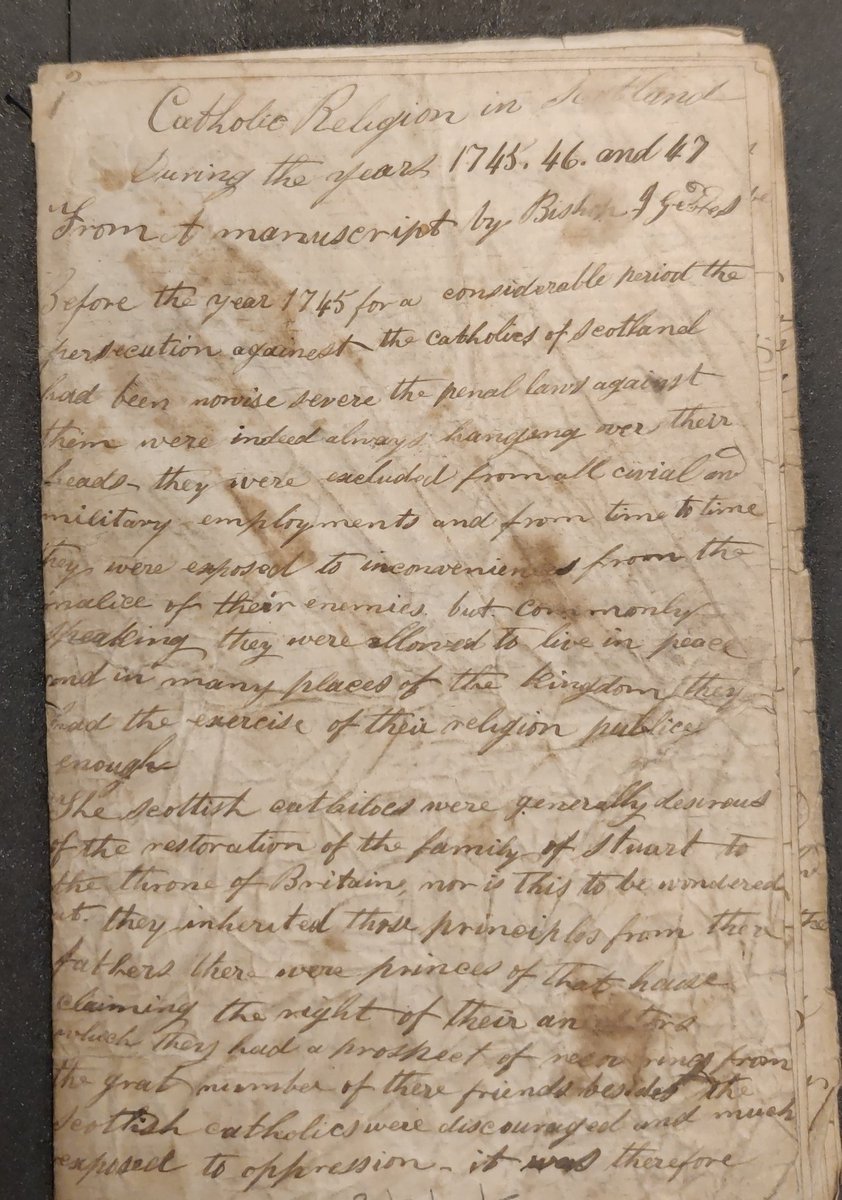 Catholic Religion in Scotland
During the years 1745. 46. and 47
From A manuscript by Bishop J Geddes
Before the year 1745 for a considerable period the
persecution againest the catholics of scotland
had been nowise severe the penal laws against
them were indeed always hanging over their
heads they were excluded from all civial and
military employments and from time to time
they were exposed to inconveniences from the
malice of their enemies, but commonly
speaking they were allowed to live in peace
and in many places of the kingdom they
had the exercise of their religion publice
enough
The scottish cathilocs were generally desirous
of the restoration of the family of Stuart to
the throne of Britain, nor is this to be wondered
at. they inherited those principlos from their
fathers there were princes of that house
claiming the right of their ancestors
which they had a prospect of recovrings from
the grat number of there friends besides the
scottish catholics were discouraged and much
exposed to oppression - it was therefore